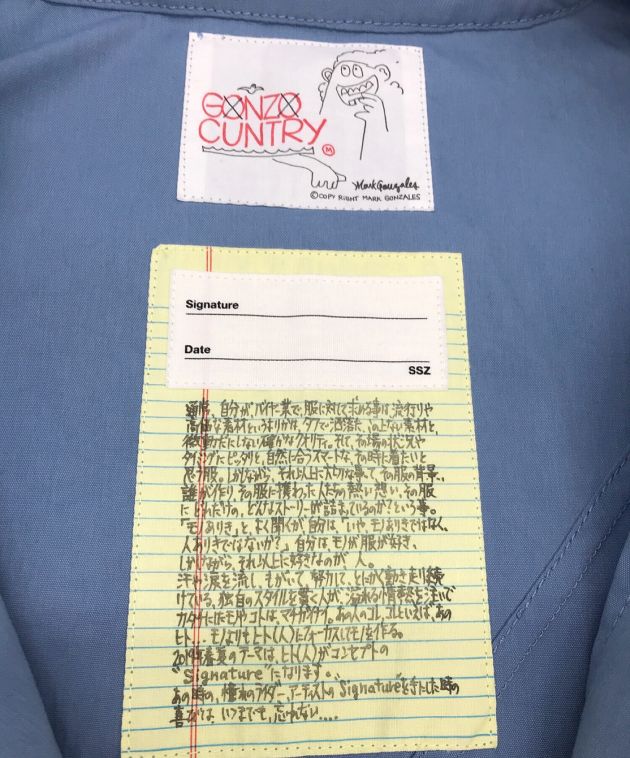 GONZO
CUNTRY
M
Mark Gonzales
©COPY RIGHT MARK GONZALES
Signature
Date
SSZ
通常、自分がバイヤー業で、服に対して求める事は 流行りや
高価な素材というよりかは、タフで洒落た、この上ない素材と、
微動だにしない確かなクオリティ。そして、その場の状況や
タイミングにピッタリと、自然に合うスマートな、その時に着たいと
思う服。しかしながら、それ以上に大切な事って、その服の背景、、
誰が作り、その服に携わった人たちの熱い想い、その服
にどれだけの、どんなストーリーが詰まっているのか？という事。
「モノありき」と、よく聞くが自分は、「いや、モノありきではなく、
人ありきではないか？」自分はモノが服が好き、
しかしながら、それ以上に好きなのが 人。
汗や涙を流し、もがいて、努力して、とにかく動き走り続
けている。独自のスタイルを貫く人が、溢れる情熱を注いで
カタチにしたモノやコトは、マチガイナイ。あの人のコレ、コレといえば、あの
ヒト... モノよりもヒト(人)にフォーカスしてモノを作る。
2019年春夏のテーマは、ヒト(人)がコンセプトの
"Signature"になります。
あの時の、憧れのライダー、アーティストの"Signature"を手にした時の
喜びは、いつまでも、忘れない....